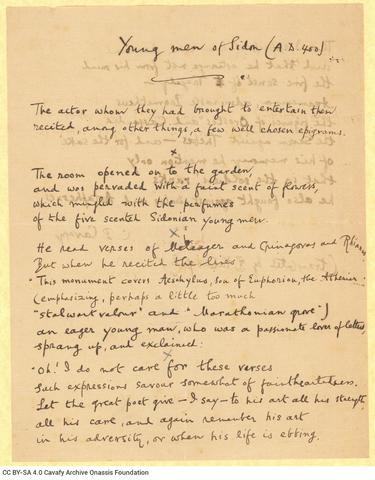 Young men of Sidon (A.D. 400)
The actor whom they had brought to entertain them
recited, among other things, a few well chosen epigrams.
x
The room opened on to the garden
and was pervaded with a faint scent of flowers,
which mingled with the perfumes
of the five scented Sidonian young men.
x
He read verses of Meleager and Crinagoras and Rhianos
But when he recited the lines
"This monument covers Aeschylus, son of Euphorion, the Athenian"
(emphasizing, perhaps a little too much
"stalwart valour" and "Marathonian grove")
an eager young man, who was a passionate lover of letters,
sprang up, and exclaimed:
x
"Oh! I do not care for these verses
Such expressions savour somewhat of faintheartedness.
Let the great poet give – I say – to his art all his strength,
all his care, and again remember his art
in his adversity, or when his life is ebbing.
CC BY-SA 4.0 Cavafy Archive Onassis Foundation